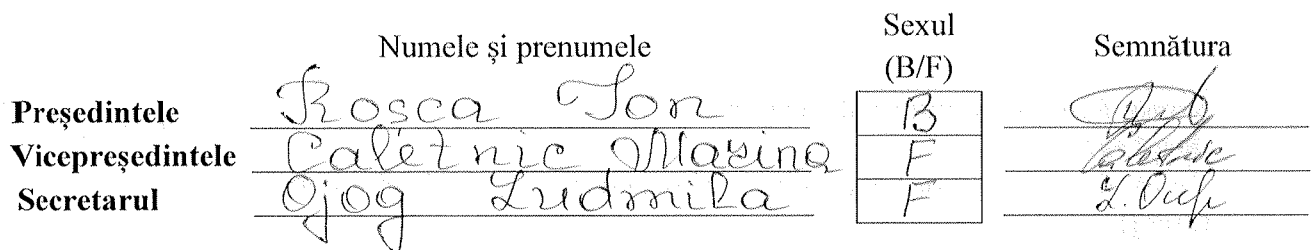 Numele și prenumele Sexul (B/F) Semnătura
Președintele Rosca Ion B
Vicepreședintele Calétnic Marina F Caletnic
Secretarul Ojog Ludmila F